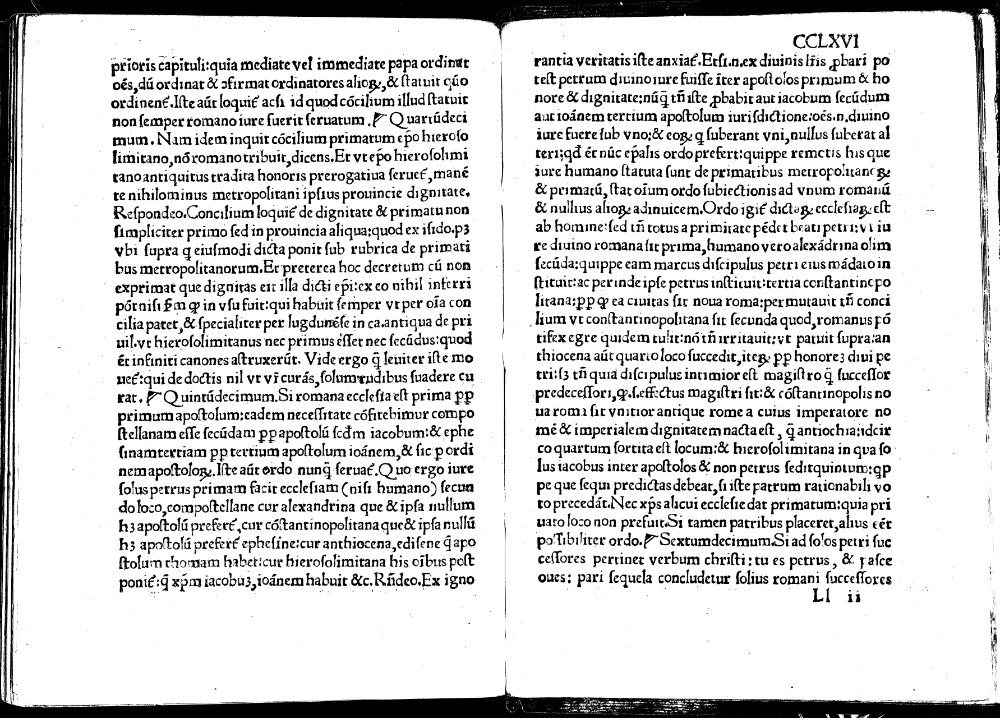 prioris capituli:quia mediate vel immediate papa ordinat
oēs,dū ordinat & ↄfirmat ordinatores alioꝝ,& ſtatuit qūo
ordinent̄.Iſte aūt loquit̄ acſi id quod cōcilium illud ſtatuit
non ſemper romano iure fuerit ſeruatum. Quartūdeci
mum. Nam idem inquit cōcilium primatum ep̄o hieroſo
limitano,nō romano tribuit,dicens.Et vt ep̄o hieroſolimi
tano antiquitus tradita honoris prerogatiua ſeruet̄,manē
te nihilominus metropolitani ipſius prouincie dignitate.
Reſpondeo.Concilium loquit̄ de dignitate & primatu non
ſimpliciter primo ſed in prouincia aliqua:quod ex iſido.pꝫ
vbi ſupra ꝙ eiuſmodi dicta ponit ſub rubrica de primati
bus metropolitanorum.Et preterea hoc decretum cū non
exprimat que dignitas eit illa dicti ep̄i:ex eo nihil inferri
pōt niſi ꝓm ꝙ in vſu fuit:qui habuit ſemper vt per oīa con
cilia patet,& ſpecialiter per lugdunēſe in ca.antiqua de pri
uil.vt hieroſolimitanus nec primus eſſet nec ſecūdus:quod
ēt infiniti canones aſtruxerūt. Vide ergo q̄ leuiter iſte mo
uet̄:qui de doctis nil vt vr̄ curās,ſolum rudibus ſuadere cu
rat. Quintūdecimum.Si romana eccleſia eſt prima ꝓp
primum apoſtolum:eadem neceſſitate cōfitebimur compo
ſtellanam eſſe ſecūdam ꝓp apoſtolū ſcd̄m iacobum:& ephe
ſinam tertiam ꝓp tertium apoſtolum ioānem,& ſic ꝑ ordi
nem apoſtoloꝝ.Iſte aūt ordo nunq̄ ſeruat̄.Quo ergo iure
ſolus petrus primam facit eccleſiam (niſi humano) ſecun
do loco,compoſtellane cur alexandrina que & ipſa nullum
hꝫ apoſtolū prefert̄,cur cōſtantinopolitana que & ipſa nullū
hꝫ apoſtolū prefert̄ epheſine:cur anthiocena,ediſene q̄ apo
ſtolum thomam habet:cur hieroſolimitana his oībus poſt
ponit̄:q̄ xp̄m iacobuꝫ,ioānem habuit &c.Rn̄deo.Ex igno
CCLXVI
rantia veritatis iſte anxiat̄.Etſi.n.ex diuinis lr̄is ꝓbari po
teſt petrum diuino iure fuiſſe iter apoſtolos primum & ho
nore & dignitate:nūq̄ tn̄ iſte ꝓbabit aut iacobum ſecūdum
aut ioānem tertium apoſtolum iuriſdictione:oēs.n.diuino
iure fuere ſub vno;& eoꝝ q ſuberant vni,nullus ſuberat al
teri;qd̄ ēt nūc ep̄alis ordo prefert:quippe remotis his que
iure humano ſtatuta ſunt de primatibus metropolitanoꝝ
& primatū,ſtat oīum ordo ſubiectionis ad vnum romanū
& nullius alioꝝ adinuicem.Ordo igit̄ dictaꝝ eccleſiaꝝ eſt
ab homine:ſed tn̄ totus a primitate pēdet beati petri:vt iu
re diuino romana ſit prima,humano vero alexādrina olim
ſecūda:quippe eam marcus diſcipulus petri eius mādato in
ſtituit:ac perinde ipſe petrus inſtituit:tertia conſtantinopo
litana:ꝓp ꝙ ea ciuitas ſit noua roma;permutauit tn̄ conci
lium vt conſtantinopolitana ſit ſecunda quod,romanus pō
tifex egre quidem tulit:nō tn̄ irritauit:vt patuit ſupra:an
thiocena aūt quarto loco ſuccedit,iteꝝ ꝓp honoreꝫ diui pe
tri:ſꝫ tn̄ quia diſcipulus intimior eſt magiſtro q̄ ſucceſſor
predeceſſori,ꝙ.ſ.effectus magiſtri ſit:& cōſtantinopolis no
ua romi ſit vnitior antique rome a cuius imperatore no
mē & imperialem dignitatem nacta eſt, q̄ antiochia:idcir
co quartum ſortita eſt locum:& hieroſolimitana in qua ſo
lus iacobus inter apoſtolos & non petrus ſedit quintum:ꝙp
pe que ſequi predictas debeat,ſi iſte patrum rationabili vo
to precedāt.Nec xp̄s alicui eccleſie dat primatum:quia pri
uato loco non prefuit.Si tamen patribus placeret,alius eēt
poſſibiliter ordo. Sextumdecimum.Si ad ſolos petri ſuc
ceſſores pertinet verbum chriſti:tu es petrus, & paſce
oues: pari ſequela concludetur ſolius romani ſucceſſores
Ll ii